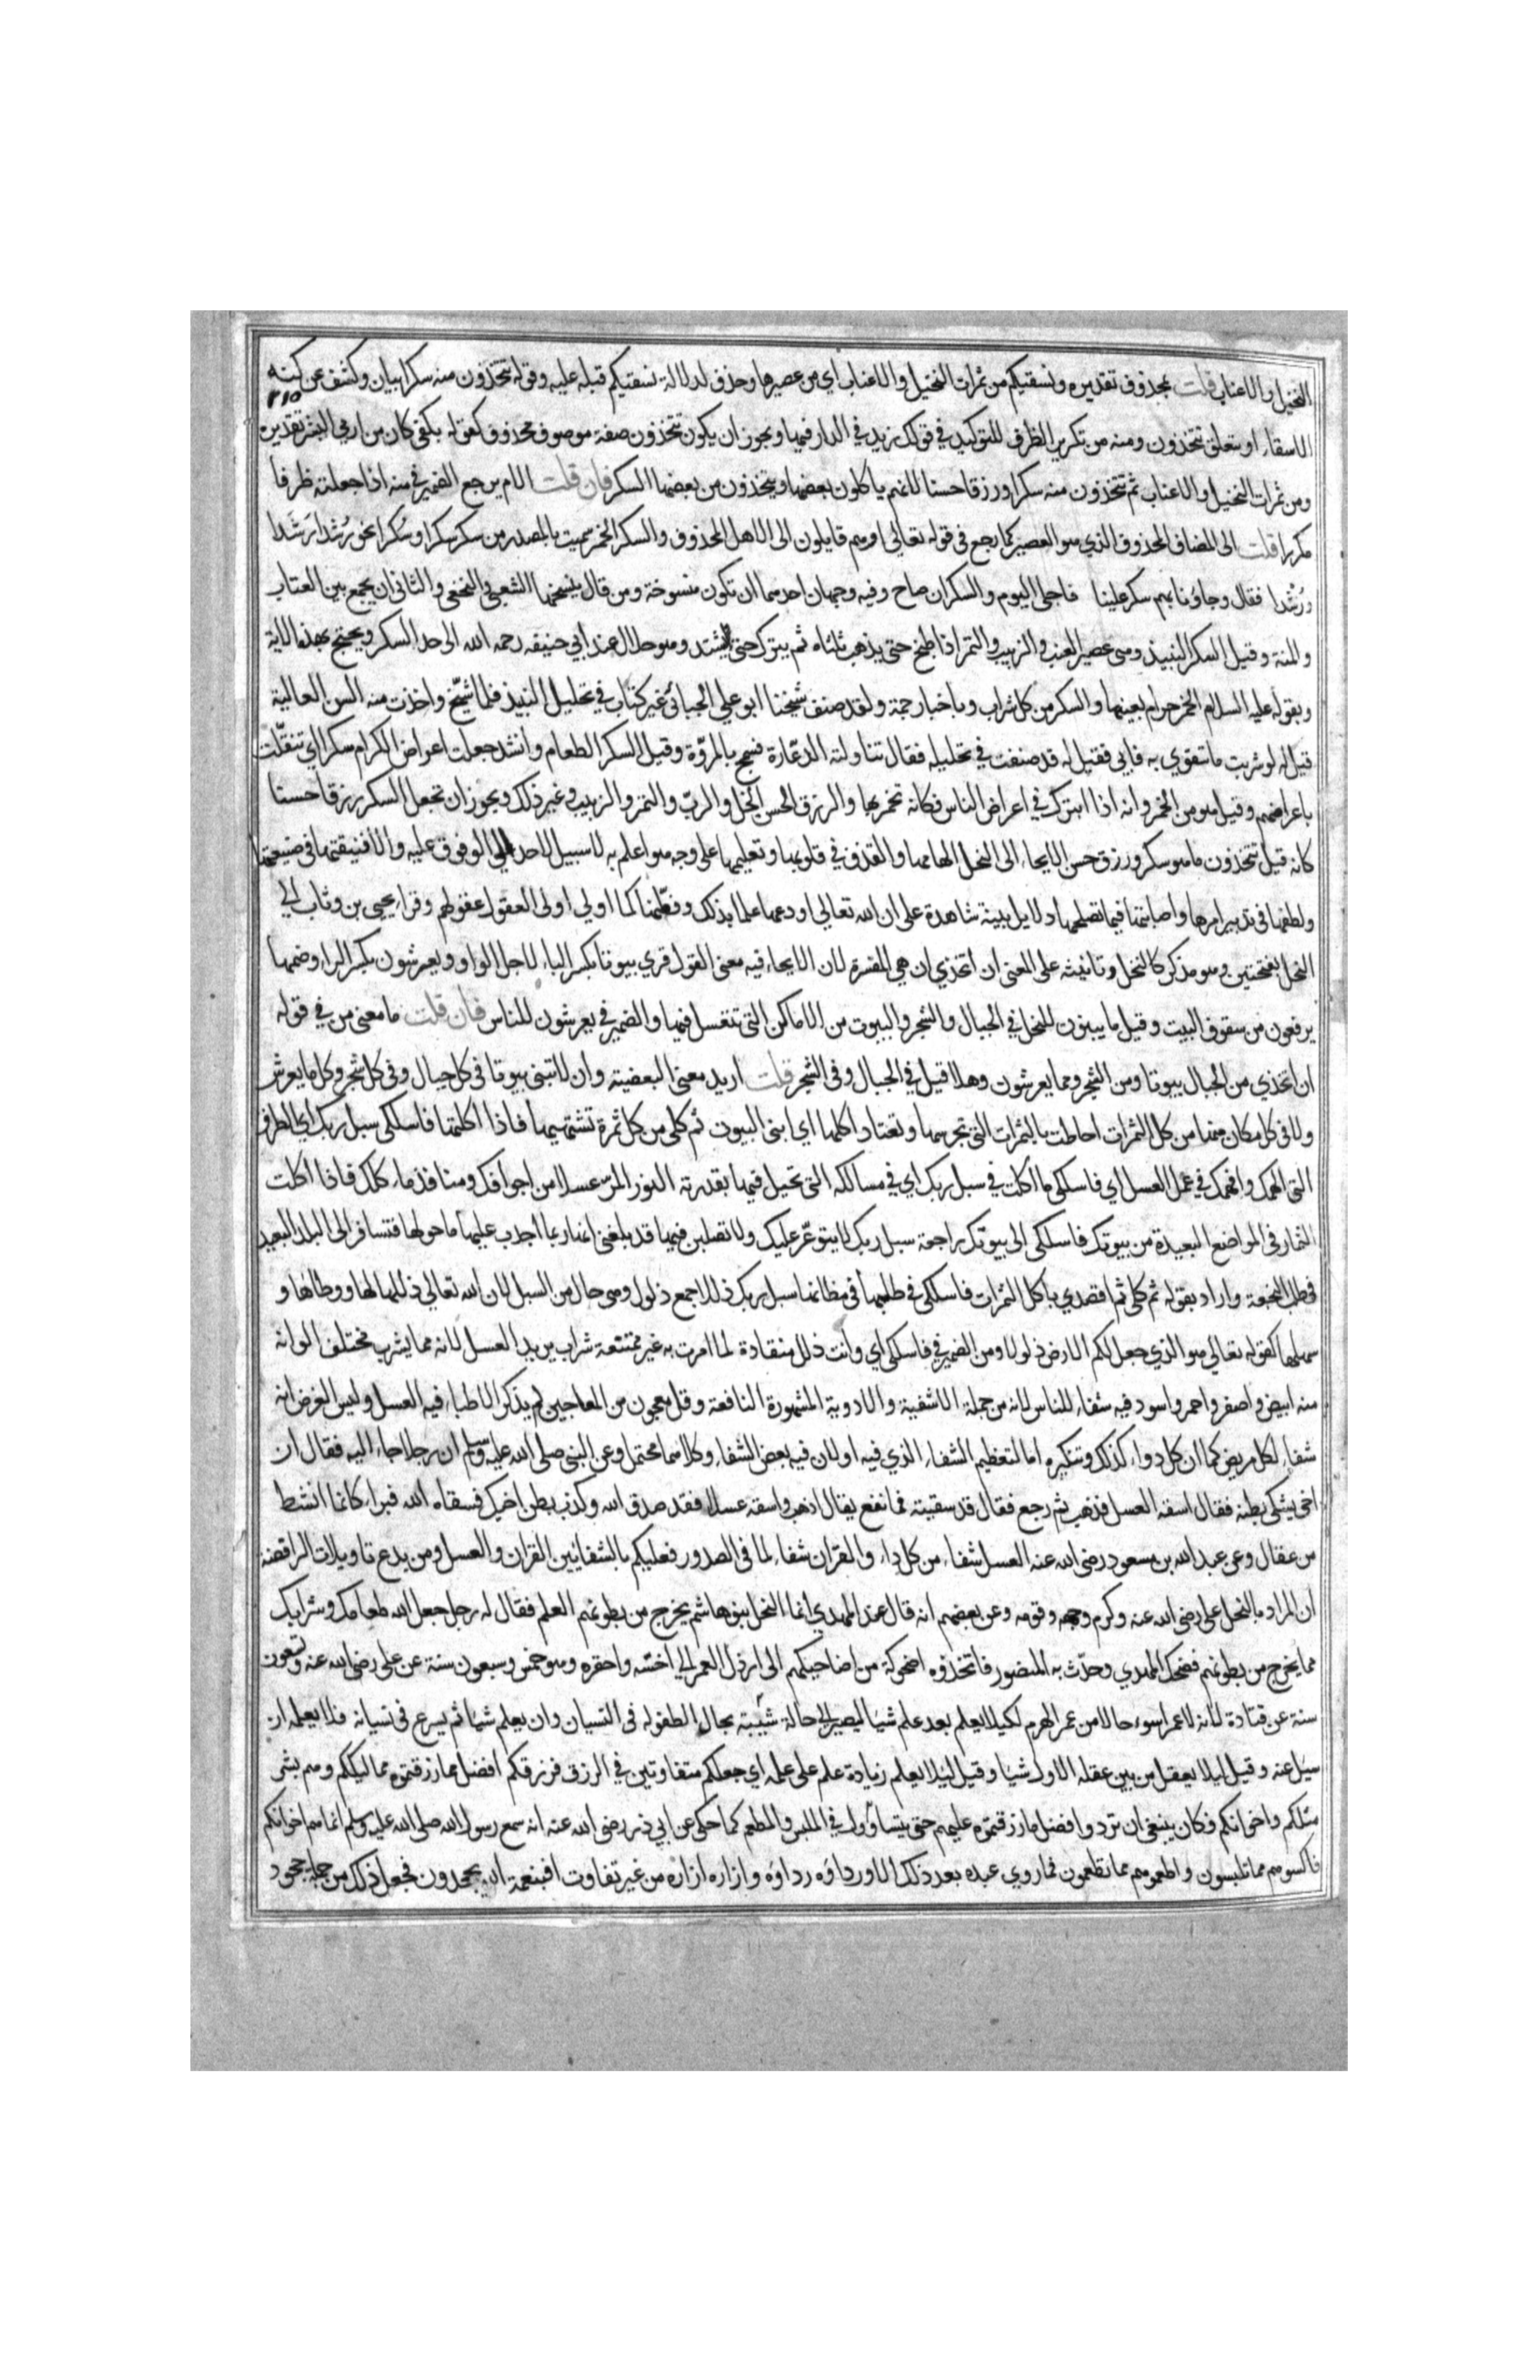 النخيل والاعناب قلت بمحذوف تقديره ونسقيكم من ثمرات النخيل والاعناب اي من عصيرها وحذف لدلالة نسقيكم قبله عليه وقوله تتخذون منه سكرا بيان وكشف عن كنه
٢١٥
الاسقاء او يتعلق تتخذون ومنه من تكرير الظرف للتوكيد في قولك زيد في الدار فيها ويجوز ان يكون تتخذون صفة موصوف محذوف كقوله بكفى كان من ارمى البشر تقديره
ومن ثمرات النخيل والاعناب ثم تتخذون منه سكرا ورزقا حسنا لانهم ياكلون بعضها ويتخذون من بعضها السكر فان قلت الام يرجع الضمير في منه اذا جعلته ظرفا
مكررا قلت الى المضاف المحذوف الذي هو العصير كما رجع في قوله تعالى او هم قايلون الى الاهل المحذوف والسكر الخمر سميت بالمصدر من سكر سكرا وسكرا نحو رشد رشدا
ورشدا فقال وجاؤنا بهم سكر علينا فاجلى اليوم والسكران صاح وفيه وجهان احدهما ان تكون منسوخة ومن قال بنسخها الشعبي والنخعي والثاني ان يجمع بين العتاب
والمنة وقيل السكر النبيذ وهي عصير العنب والزبيب والتمر اذا طبخ حتى يذهب ثلثاه ثم يترك حتى يشتد وهو حلال عند ابي حنيفه رحمه الله الى حد السكر ويحتج بهذه الاية
وبقوله عليه السلام الخمر حرام بعينها والسكر من كل شراب وباخبار جمة ولقد صنف شيخنا ابو علي الجبائي غير كتاب في تحليل النبيذ فلما شيّخ واخذت منه السن العالية
قيل له لو شربت ما تتقوي به فابي فقيل له قد صنفت في تحليله فقال تناولته الدعّارة فسمج بالمروّة وقيل السكر الطعام وانشد جعلت اعراض الكرام سكرا اي تنقلت
باعراضهم وقيل هو من الخمر وانه اذا ابترك في اعراض الناس فكانه تخمر بها والرزق الحسن الخل والربّ والتمر والزبيب وغير ذلك ويجوز ان تجعل السكر رزقا حسنا
كانه قيل تتخذون ما هو سكر ورزق حسن الايحاء الى النحل الهامها والقذف في قلوبها وتعليمها على وجه هو اعلم به لا سبيل لاحد الى الوقوف عليه والا فنيقتها في صنعتها
ولطفها في تدبير امرها واصابتها فيما تصلحها دلايل بينة شاهدة على ان الله تعالي اودعها علما بذلك وفطّنها كما اولي اولى العقول عقولهم وقراء يحيى بن وثاب الي
النحل بفتحتين وهو مذكر كالنخل وتانيثه على المعنى ان اتخذي ان هي المفسرة لان الايحاء فيه معنى القول قري بيوتا بكسر الباء لاجل الواو ويعرشون بكسر الراء وضمها
يرفعون من سقوف البيت وقيل ما يبنون للنحل في الجبال والشجر والبيوت من الاماكن التي تتعسل فيها والضمير في يعرشون للناس فان قلت ما معنى من في قوله
ان اتخذي من الجبال بيوتا ومن الشجر ومما يعرشون وهلا قيل في الجبال وفى الشجر قلت اريد معنى البعضية وان لا تبنى بيوتا في كل جبال وفى كل شجر وكل ما يعرش
ولا في كل مكان منها من كل الثمرات احاطت بالثمرات التي تجرسها وتعتاد اكلها اي ابنى البيوت ثم كلى من كل ثمرة تشتهيها فاذا اكلتها فاسلكى سبل ربك اي الطرق
التي الهمك وافهمك في عمل العسل اي فاسلكى ما اكلت في سبل ربك اي في مسالكه التي تحيل فيها بقدرته النور المرّ عسلا من اجوافك ومنافذ ماء كلك فاذا اكلت
الثمار في المواضع البعيدة من بيوتك فاسلكى الى بيوتك راجعة سبل ربك لا يتوعّر عليك ولا تضلين فيها قد بلغنى انها ربما اجدب عليها ما حولها فتسافر الى البلد البعيد
في طلب النجعة واراد بقوله ثم كلى ثم اقصدي باكل الثمرات فاسلكى في طلبها في مظانها سبل ربك ذللا جمع ذلول وهي حال من السبل لان الله تعالي ذللها لها ووطاءها و
سهلها كقوله تعالي هو الذي جعل لكم الارض ذلولا ومن الضمير في فاسلكى اي وانت ذلل منقادة لما امرت به غير ممتنعة شراب يريد العسل لانه مما يشرب مختلف الوانه
منه ابيض واصفر واحمر واسود فيه شفاء للناس لانه من جملة الاشفية والادوية المشهورة النافعة وقل معجون من المعاجين لم يذكر الاطباء فيه العسل وليس الغرض انه
شفاء لكل مريض كما ان كل دواء كذلك وتنكيره اما لتعظيم الشفاء الذي فيه او لان فيه بعض الشفاء وكلاهما محتمل وعن النبى صلى الله عليه وسلم ان رجلا جاء اليه فقال ان
اخى يشتكى بطنه فقال اسقه العسل فذهب ثم رجع فقال قد سقيته فما نفع فقال اذهب واسقه عسلا فقد صدق الله وكذب بطن اخيك فسقاه الله فبراء كانما انشط
من عقال وعن عبد الله بن مسعود رضى الله عنه العسل شفاء من كل داء والقران شفاء لما في الصدور فعليكم بالشفايين القران والعسل ومن بدع تاويلات الرافضة
ان المراد بالنحل علي رضى الله عنه وكرم وجهه وقومه وعن بعضهم انه قال عند المهدي انما النحل بنو هاشم يخرج من بطونهم العلم فقال له رجل جعل الله طعامك وشرابك
مما يخرج من بطونهم فضحك المهدي وحدّث به المنصور فاتخذوه اضحوكة من اضاحيكهم الى ارذل العمر الي اخسّه واحقره وهو خمس وسبعون سنة عن علي رضى الله عنه وتسعون
سنة عن قتادة لانه لا عمر اسوء حالا من عمر الهرم لكيلا يعلم بعد علم شيا ليصير الي حالة شبيهة بحال الطفوله في النسيان وان يعلم شيا ثم يسرع في نسيانه فلا يعلمه ان
سيل عنه وقيل ليلا يعقل من بين عقله الاول شيا وقيل ليلا يعلم زيادة علم على علمه اي جعلكم متفاوتين في الرزق فرزقكم افضل مما رزقتموه مماليككم وهم بشر
مثلكم واخوانكم وكان ينبغى ان تردوا فضل ما رزقتموه عليهم حتى يتساوا في الملبس والمطعم كما حكى عن ابي ذر رضى الله عنه انه سمع رسول الله صلى الله عليه وسلم انما هم اخوانكم
فاكسوهم مما تلبسون واطعموهم مما تطعمون فما روي عبده بعد ذلك الا ورداؤه رداؤه وازاره ازاره من غير تفاوت افبنعمة الله يجحدون فجعل ذلك من جملة جحود